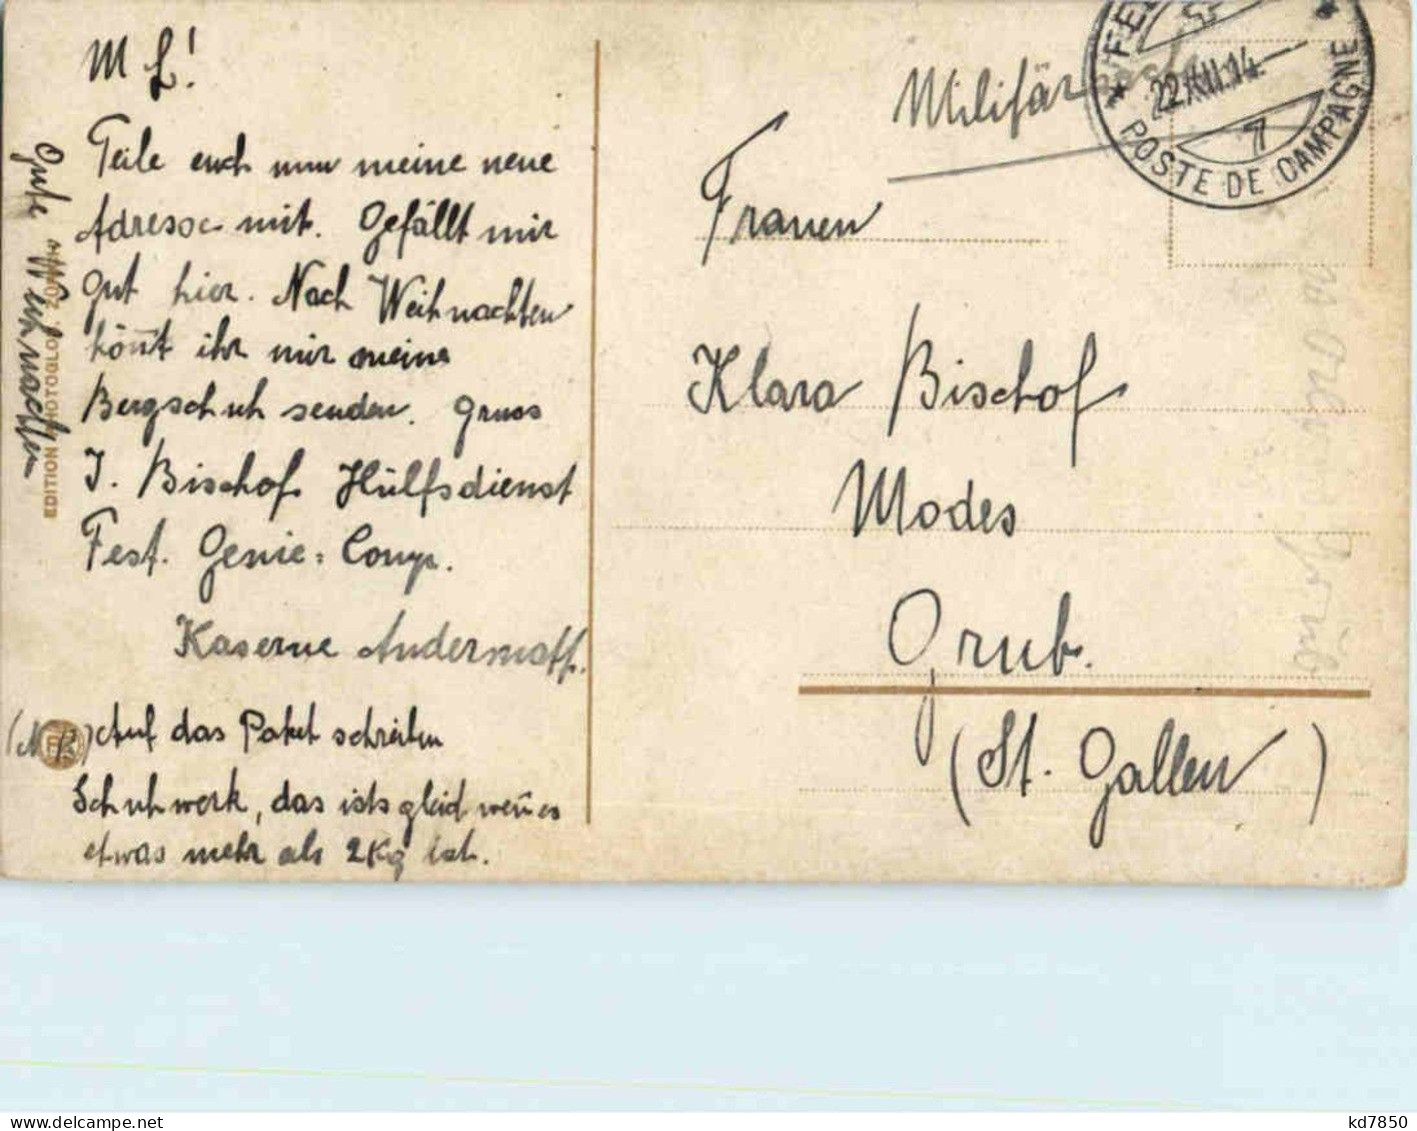 M L!
Teile euch nun meine neue
Adresse mit. Gefällt mir
gut hier. Nach Weihnachten
könn̄t ihr mir meine
Bergschuh senden. Gruss
J. Bischof Hülfsdienst
Fest. Genie=Comp.
Kaserne Andermatt.
(NB) Auf das Paket schreiben
Schuhwerk, das ists gleich wen̄ es
etwas mehr als 2Kg ist.
Gute Weihnachten
EDITION PHOTOGLOB
Militär
22.XII.14.
7
POSTE DE CAMPAGNE
Frauen
Klara Bischof
Modes
Grub.
(St. Gallen)
delcampe.net
kd7850